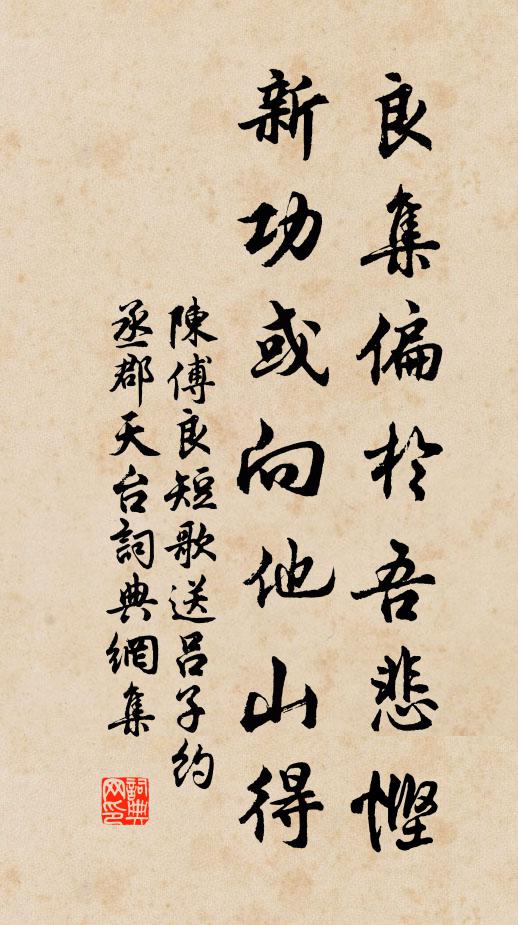 良集偏於吾悲慳
新功或向他山得
陳傅良短歌送呂子約
丞郡天台詞典網集
詞典
网印